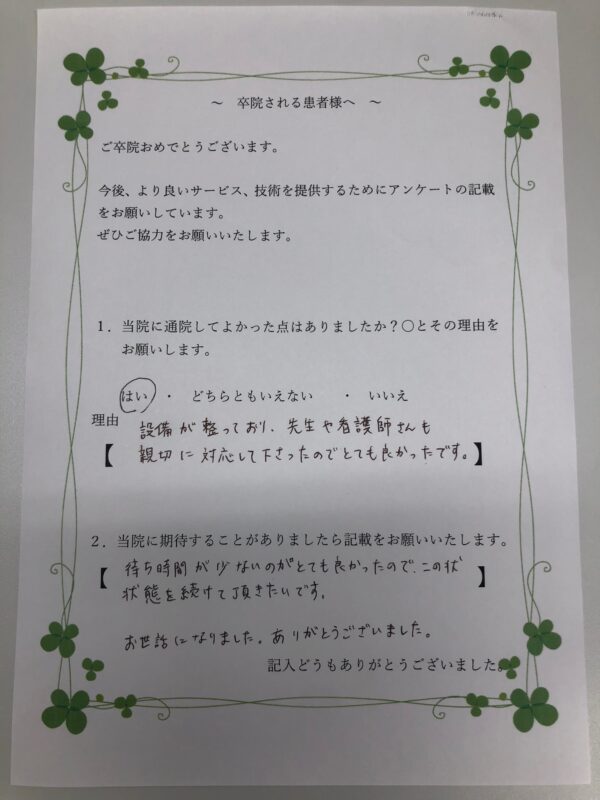 ～　卒院される患者様へ　～
ご卒院おめでとうございます。
今後、より良いサービス、技術を提供するためにアンケートの記載
をお願いしています。
ぜひご協力をお願いいたします。
１．当院に通院してよかった点はありましたか？〇とその理由を
お願いします。
はい　・　どちらともいえない　・　いいえ
理由
【設備が整っており、先生や看護師さんも
親切に対応して下さったのでとても良かったです。】
２．当院に期待することがありましたら記載をお願いいたします。
【待ち時間が少ないのがとても良かったので、この状
状態を続けて頂きたいです。】
お世話になりました。ありがとうございました。
記入どうもありがとうございました。